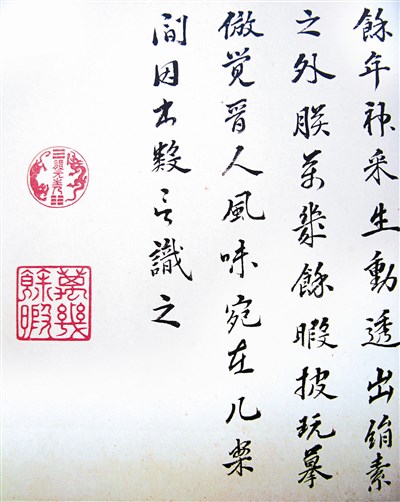 餘年神采生動透出絹素
之外朕萬幾餘暇披玩摹
倣覺晉人風味宛在几案
間因書數言識之
體元主人
萬幾餘暇